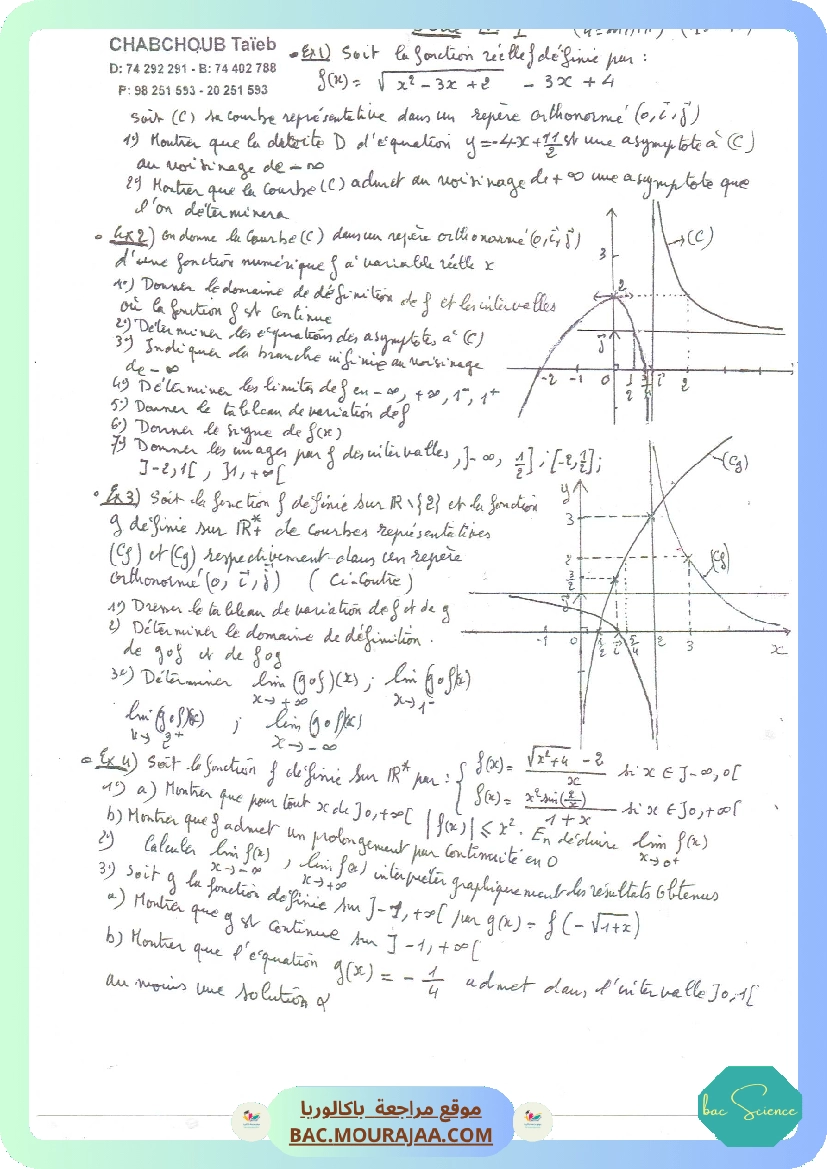 CHABCHOUB Taïeb
D: 74 292 291 - B: 74 402 788
P: 98 251 593 - 20 251 593
Ex1) Soit la fonction réelle f définie par :
f(x) = √(x² - 3x + 2) - 3x + 4
Soit (C) sa courbe représentative dans un repère orthonormé (0, i, j)
1°) Montrer que la droite D d'équation y = -4x + 11/2 est une asymptote à (C)
au voisinage de -∞
2°) Montrer que la courbe (C) admet au voisinage de +∞ une asymptote que
l'on déterminera
Ex2) on donne la courbe (C) dans un repère orthonormé (0, i, j)
d'une fonction numérique f à variable réelle x
1°) Donner le domaine de définition de f et les intervalles
où la fonction f est continue
2°) Déterminer les équations des asymptotes à (C)
3°) Indiquer la branche infinie au voisinage
de -∞
4°) Déterminer les limites de f en -∞, +∞, 1⁻, 1⁺
5°) Donner le tableau de variation de f
6°) Donner le signe de f(x)
7°) Donner les images par f des intervalles, ]-∞, 1/2] ; [-2, 1/2] ;
]-2, 1[ , ]1, +∞[
(C)
3
2
j
-2 -1 0 1/2 i 2
Ex3) Soit la fonction f définie sur IR\{2} et la fonction
g définie sur IR*+ de courbes représentatives
(Cf) et (Cg) respectivement dans un repère
orthonormé (0, i, j) (Ci-contre)
1°) Dresser le tableau de variation de f et de g
2) Déterminer le domaine de définition
de gof et de fog
3°) Déterminer lim (gof)(x) ; lim (gof)(x)
x→+∞ x→1⁻
lim (gof)(x) ; lim (gof)(x)
x→2⁺ x→-∞
(Cg)
y
3
2
3/2
(Cf)
j
-1 0 1/2 i 5/4 2 3 x
Ex4) Soit la fonction f définie sur IR* par : { f(x) = (√(x²+4) - 2)/x si x ∈ ]-∞, 0[
f(x) = (x² sin(2/x))/(1 + x) si x ∈ ]0, +∞[
1°) a) Montrer que pour tout x de ]0, +∞[ |f(x)| ≤ x². En déduire lim f(x)
x→0⁺
b) Montrer que f admet un prolongement par continuité en 0
2°) Calculer lim f(x) , lim f(x) interpréter graphiquement les résultats obtenus
x→-∞ x→+∞
3°) Soit g la fonction définie sur ]-1, +∞[ par g(x) = f(-√(1+x))
a) Montrer que g est continue sur ]-1, +∞[
b) Montrer que l'équation g(x) = -1/4 admet dans l'intervalle ]0, 1[
au moins une solution α
موقع مراجعة باكالوريا
BAC.MOURAJAA.COM
bac Science